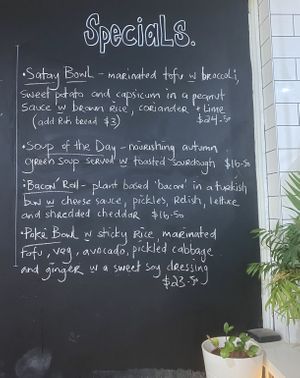 Specials.
• Satay Bowl - marinated tofu w broccoli,
sweet potato and capsicum in a peanut
sauce w brown rice, coriander + lime
(add Roti bread $3) $24.50
• Soup of the Day - nourishing autumn
green soup served w toasted sourdough $16.50
• 'Bacon' Roll - plant based 'bacon' in a turkish
bun w cheese sauce, pickles, relish, lettuce
and shredded cheddar $16.50
• Poké Bowl w sticky rice, marinated
tofu, veg, avocado, pickled cabbage
and ginger w a sweet soy dressing
$23.50